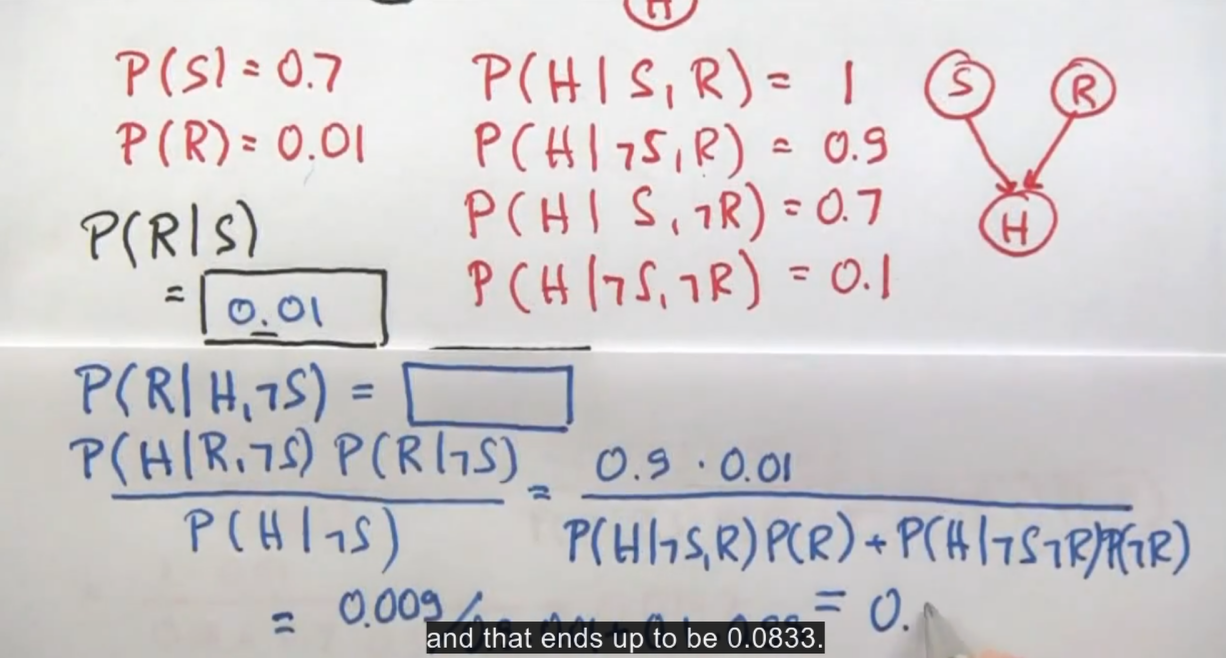 H
P(S) = 0.7
P(R) = 0.01
P(H | S, R) = 1
P(H | ¬S, R) = 0.9
P(H | S, ¬R) = 0.7
P(H | ¬S, ¬R) = 0.1
S R
H
P(R | S)
= 0.01
P(R | H, ¬S) =
P(H | R, ¬S) P(R | ¬S) = 0.9 · 0.01
P(H | ¬S) P(H | ¬S, R) P(R) + P(H | ¬S ¬R) P(¬R)
= 0.009/ = 0.
and that ends up to be 0.0833.